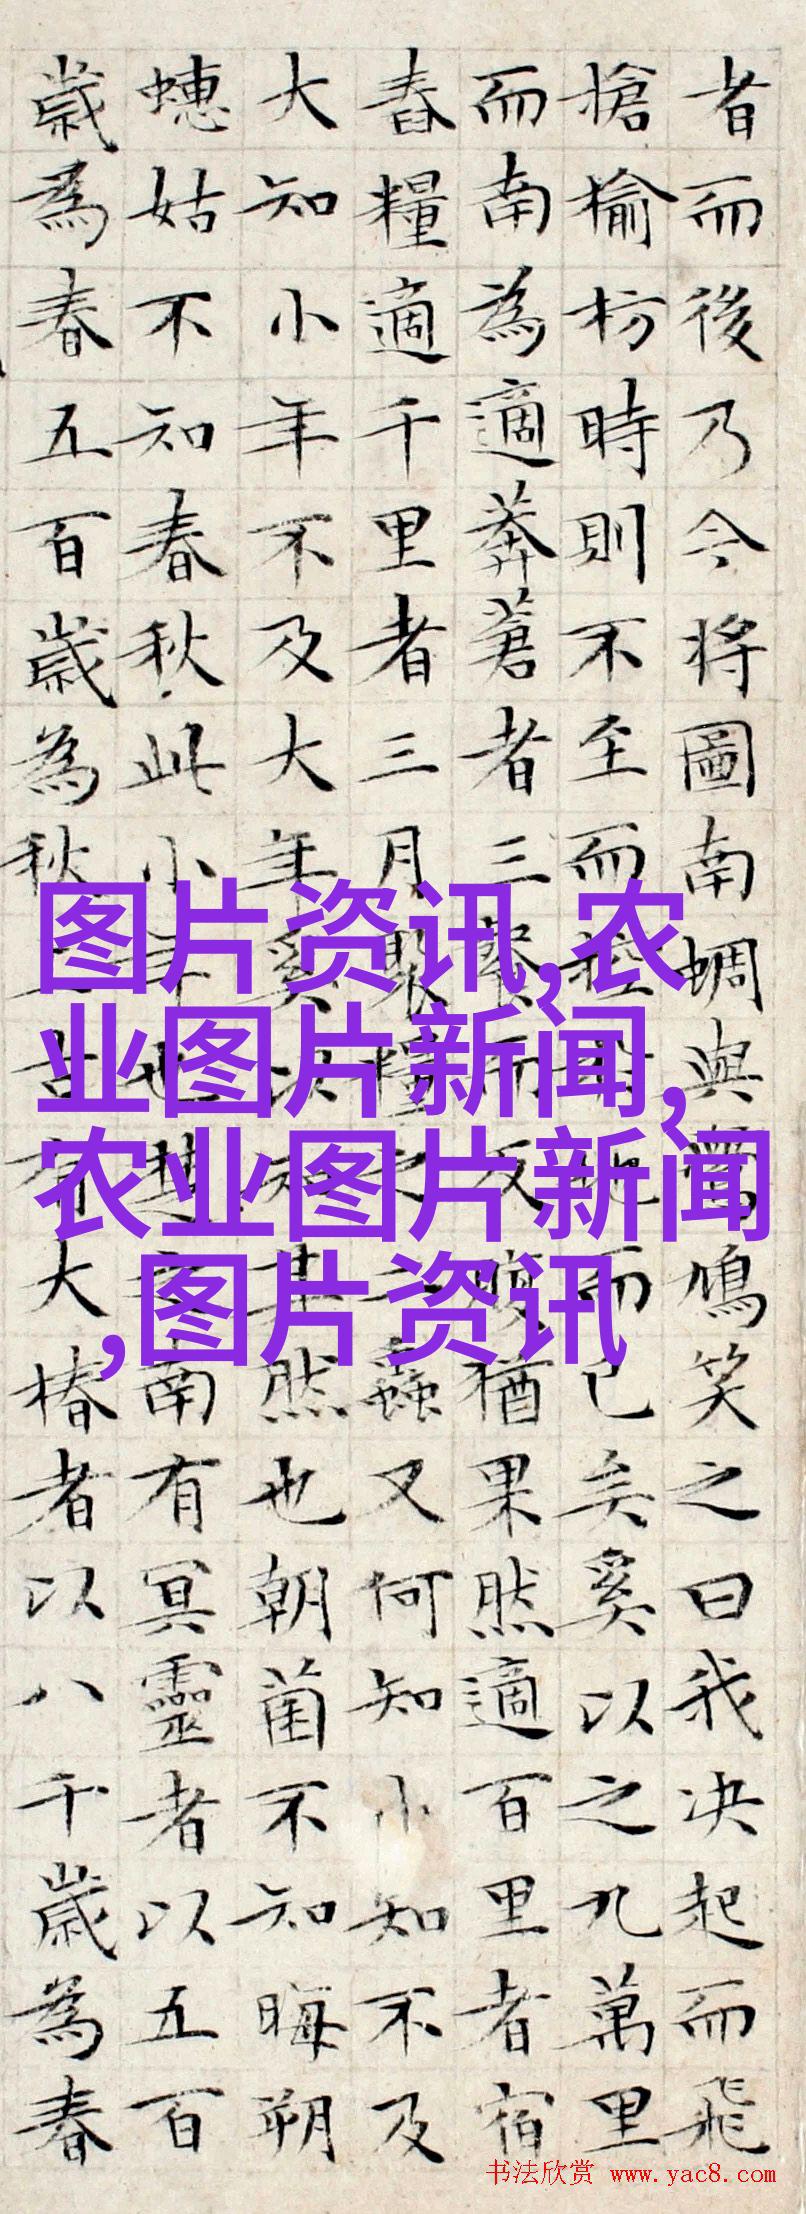 者而後乃今将圖南蜩與鳩笑之曰我决起而飛
槍榆枋時則不至而控地而已矣奚以之九萬里
而南為適莽蒼者三而反腹猶果然適百里者宿
舂糧適千里者三月聚糧之二蟲又何知小知不及
大知小年不及大年奚知其然也朝菌不知晦朔
蟪姑不知春秋此小年也楚之南有冥靈者以五百
歲為春五百歲為秋上古有大椿者以八千歲為春
图片资讯,农
业图片新闻,
农业图片新闻
,图片资讯
书法欣赏 www.yac8.com